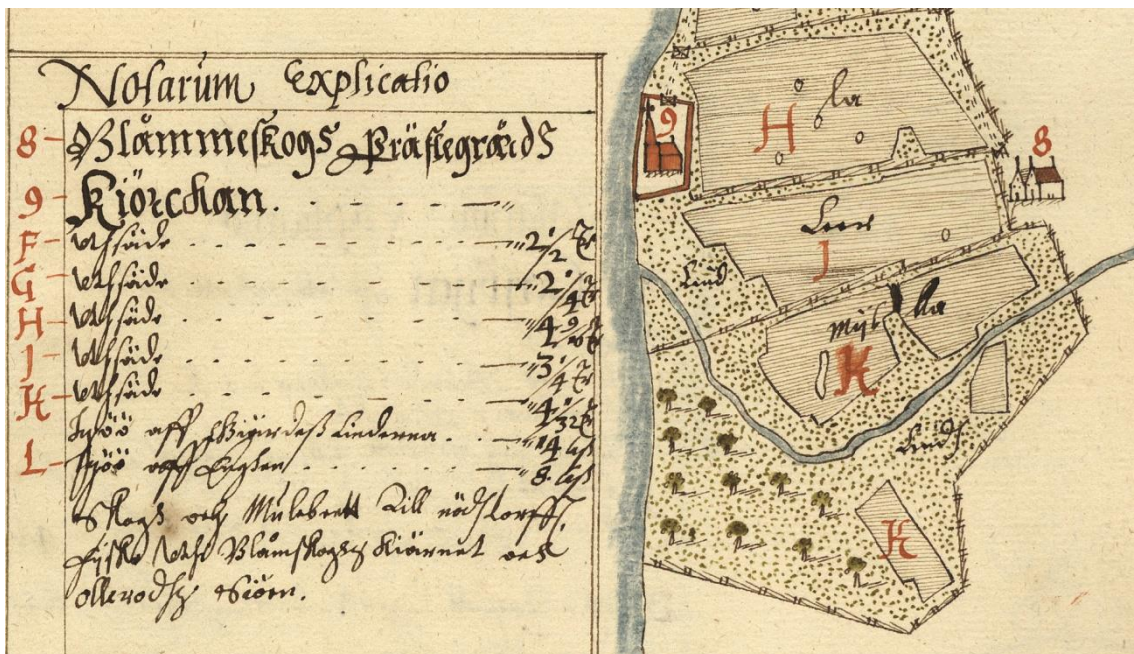 Notarum Explicatio
8 - Blåmmeskogs Prästegrånds
9 - Kiörchan.
F - Uthsäde - 2 1/2 Tr
G - Uthsäde - 2 1/4 Tr
H - Uthsäde - 4
J - Uthsäde - 3 1/4 Tr
K - Uthsäde - 4 1/32 Tr
Hööö aff Giärdeß Linderna. - 14 laß
L - Hööö aff Engzen - 8. laß
Skogh och Mulebett till nödtorfft,
Fiske Uthi Blåmskogz Kiärnet och
ollerodhz Siöen.
la
H
9
8
Leer
J
Lind
Myl la
K
Lindh
K